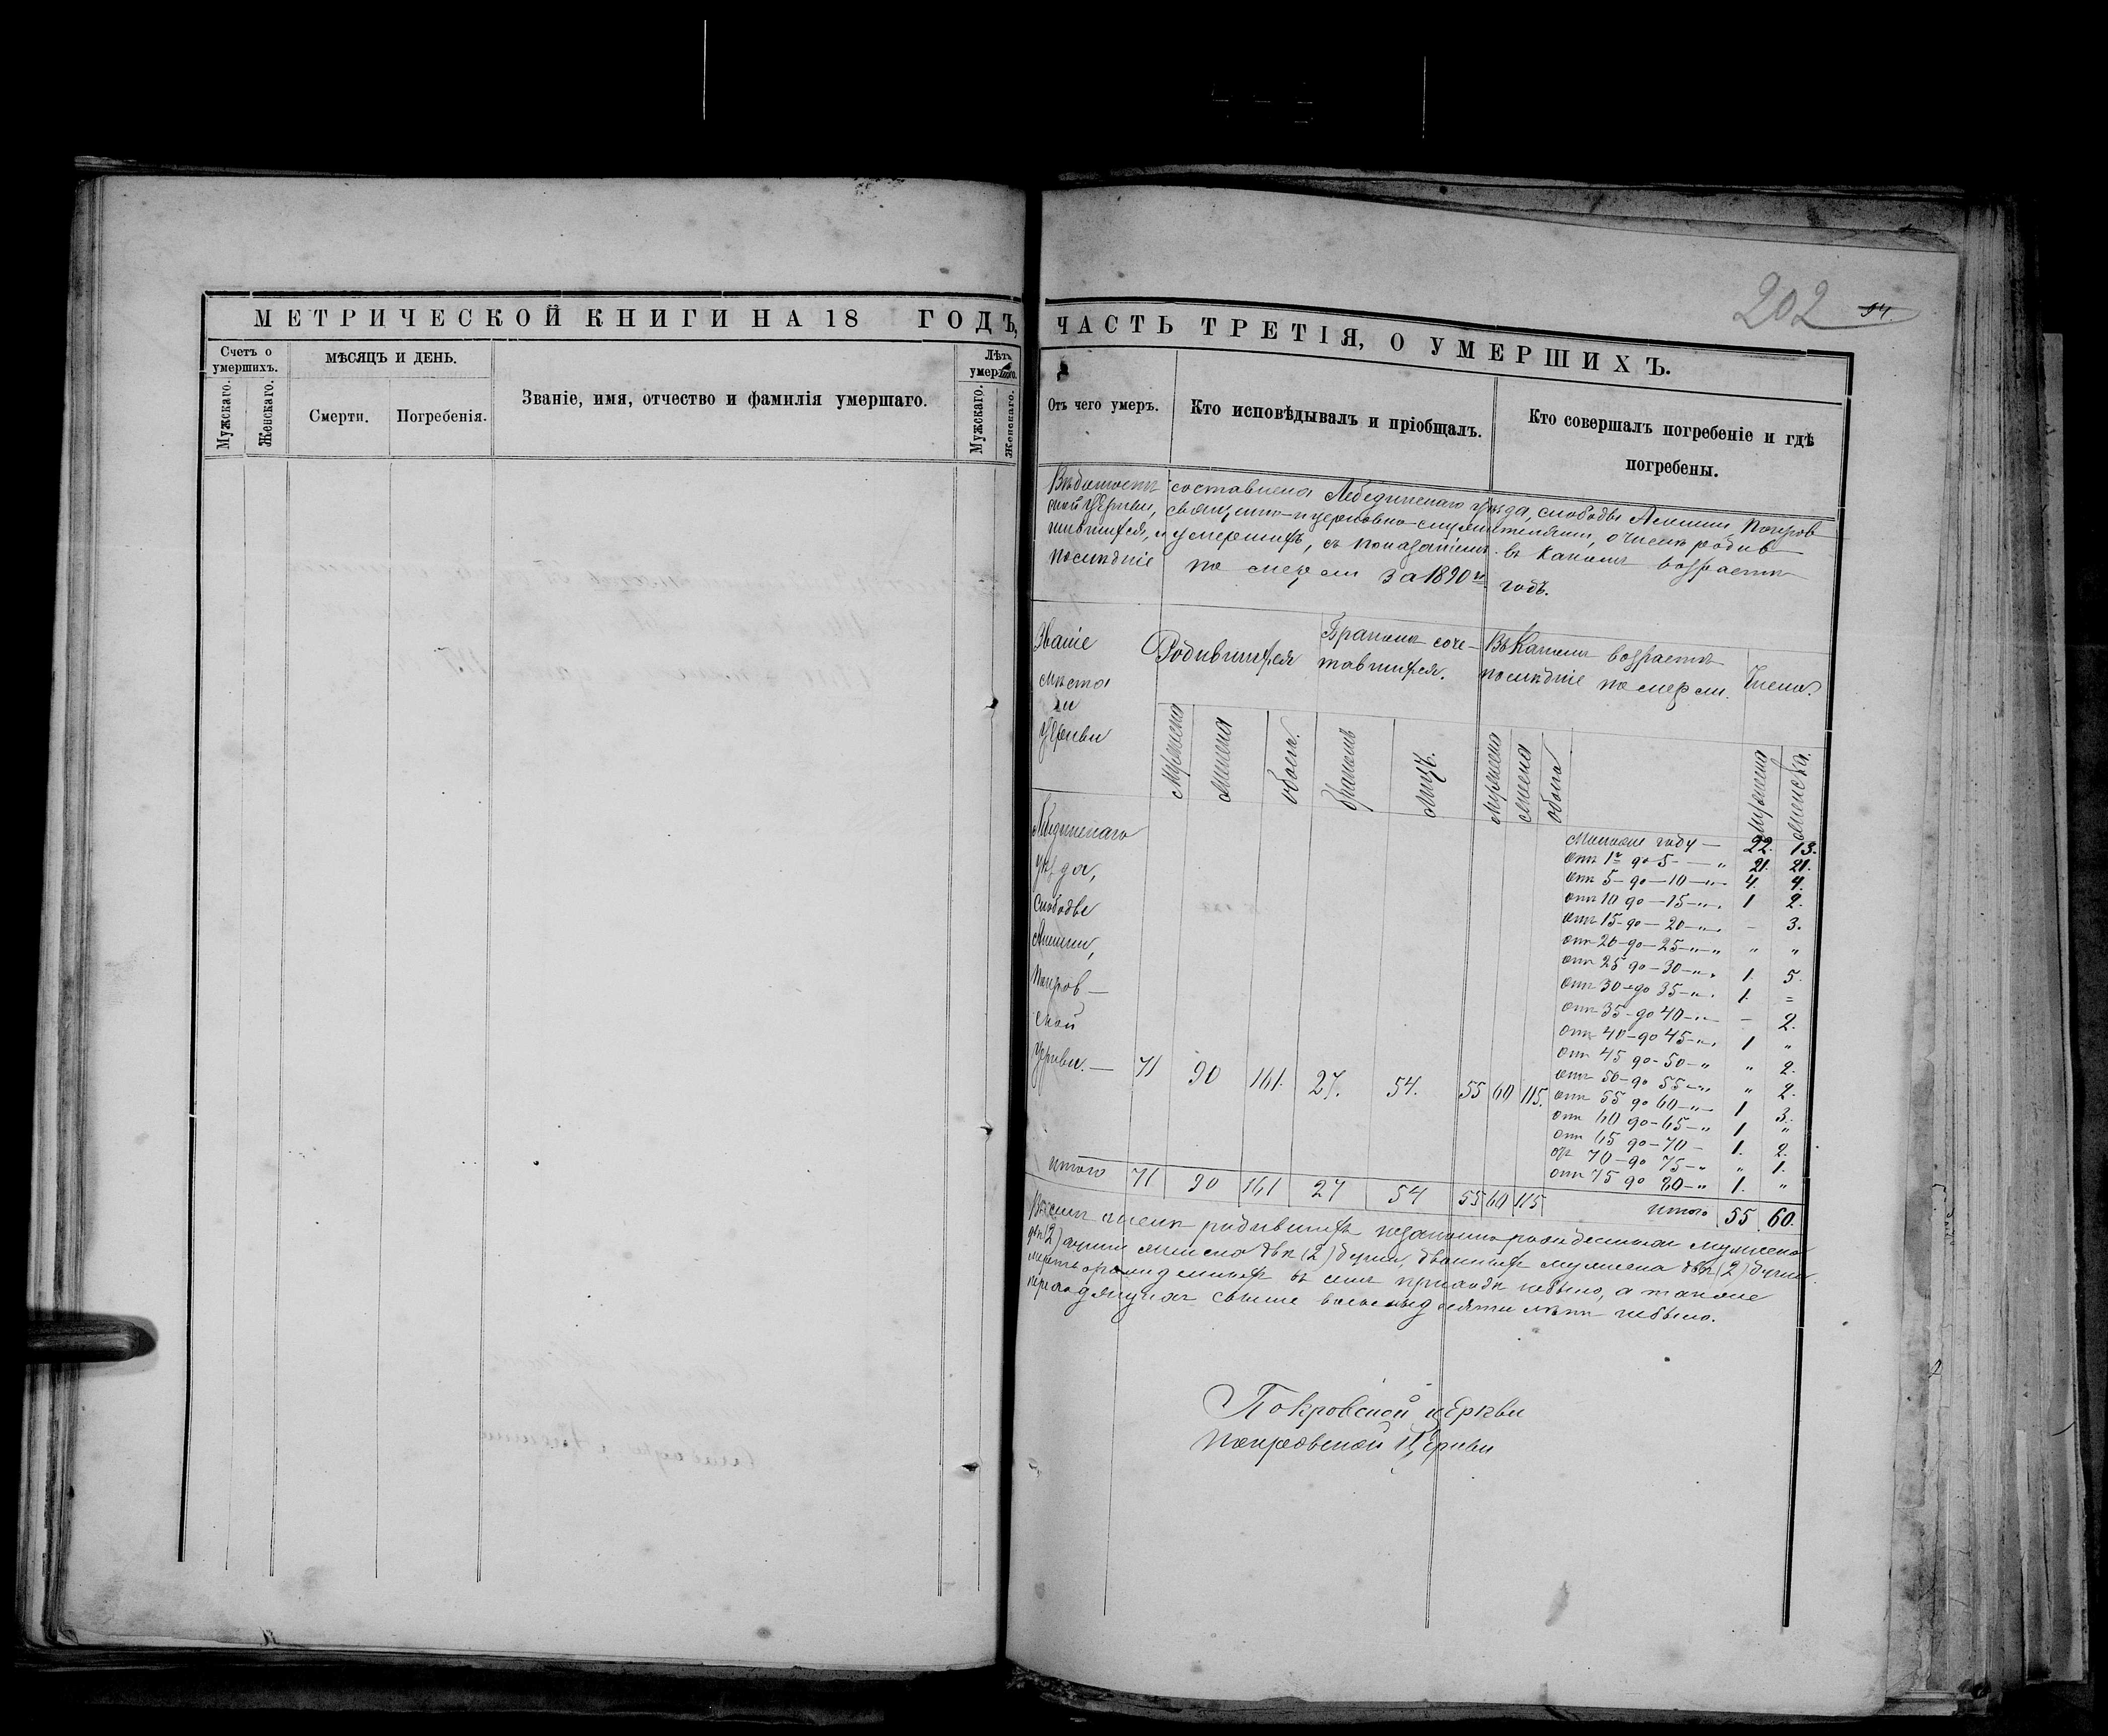 МЕТРИЧЕСКОЙ КНИГИ НА 18 ГОДЪ,
Счетъ о умершихъ.
МѢСЯЦЪ И ДЕНЬ.
Званіе, имя, отчество и фамилія умершаго.
Лѣта умершаго.
Мужскаго.
Женскаго.
Смерти.
Погребенія.
Мужскаго.
Женскаго.
202
94.
ЧАСТЬ ТРЕТІЯ, О УМЕРШИХЪ.
Отъ чего умеръ.
Кто исповѣдывалъ и пріобщалъ.
Кто совершалъ погребеніе и гдѣ
погребены.
Вѣдомость составлена Лебединскаго уѣзда, слободы Алешни, Покров
ской Церкви, священно-церковно-служителями, о числѣ родив
шихся, и умершихъ, съ показаніемъ въ какомъ возрастѣ
послѣдніе померли за 1890й годъ.
Званіе
мѣста
и
Церкви
Родившихся
Бракомъ соче-
тавшихся.
Въ Какомъ возрастѣ
послѣдніе померли.
Число.
Мужеска
Женска
обоего.
Браковъ
Лицъ.
Мужеска
Женска
обоего
Мужеска
Женска.
Лебединскаго
уѣзда,
слободы
Алешни,
Покров—
ской
Церкви.— 71 90 161. 27. 54. 55 60 115.
Моложе году — 22. 13.
отъ 1го до 5 — „ 21. 21.
отъ 5 - до — 10 — „ 4. 4.
отъ 10 до — 15 — „ 1 2.
отъ 15 - до — 20 — „ - 3.
отъ 20 - до — 25 — „ „ „
отъ 25 до — 30 — „ 1. 5.
отъ 30 - до 35 — „ 1. =
отъ 35 - до 40 — „ - 2.
отъ 40 - до 45 — „ 1 „
отъ 45 до - 50 — „ „ 2.
отъ 50 - до 55 — „ „ 2.
отъ 55 до 60 — „ 1 3.
отъ 60 до - 65 — „ 1 „
отъ 65 до - 70 - 1. 2.
отъ 70 - до 75 — „ „ 1.
отъ 75 до 80 — „ 1. „
итого 71 90 161 27 54 55 60 115
итого 55 60.
Въ семъ числѣ родившихъ незаконнорожденныхъ мужеска
двѣ (2) души женска двѣ (2) души, двойныхъ мужеска двѣ (2) души.
мертворожденныхъ въ семъ приходѣ небыло, а также
свыше восьмидесяти лѣтъ небыло.
Покровской церкви
Покровской Церкви